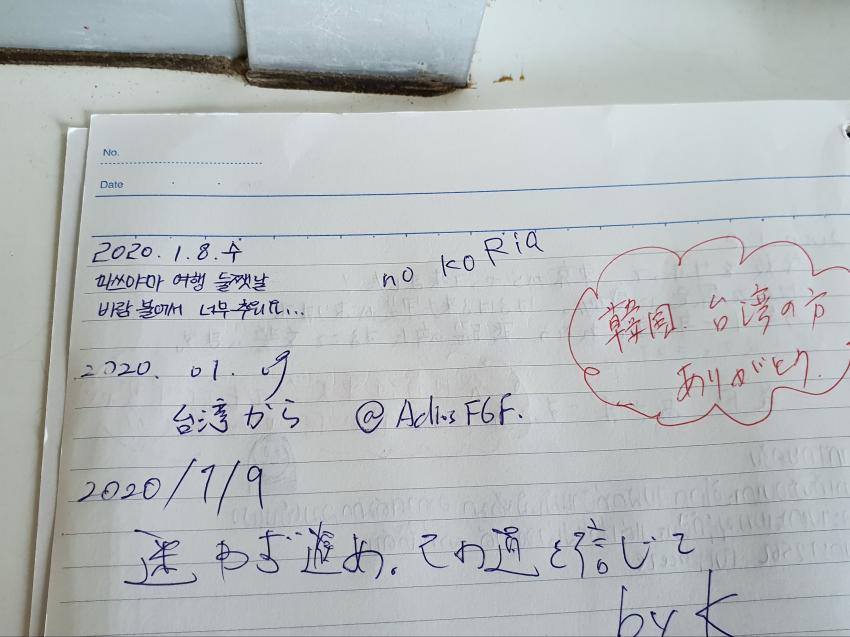 No.
Date
2020.1.8.수
미쓰야마 여행 둘쨋날
바람 불어서 너무 추워요...
no KoRia
韓国、台湾の方
ありがとう.
2020. 01. 09
台湾から @AdiosFGF.
2020/1/9
迷わず進め. その道を信じて
by K